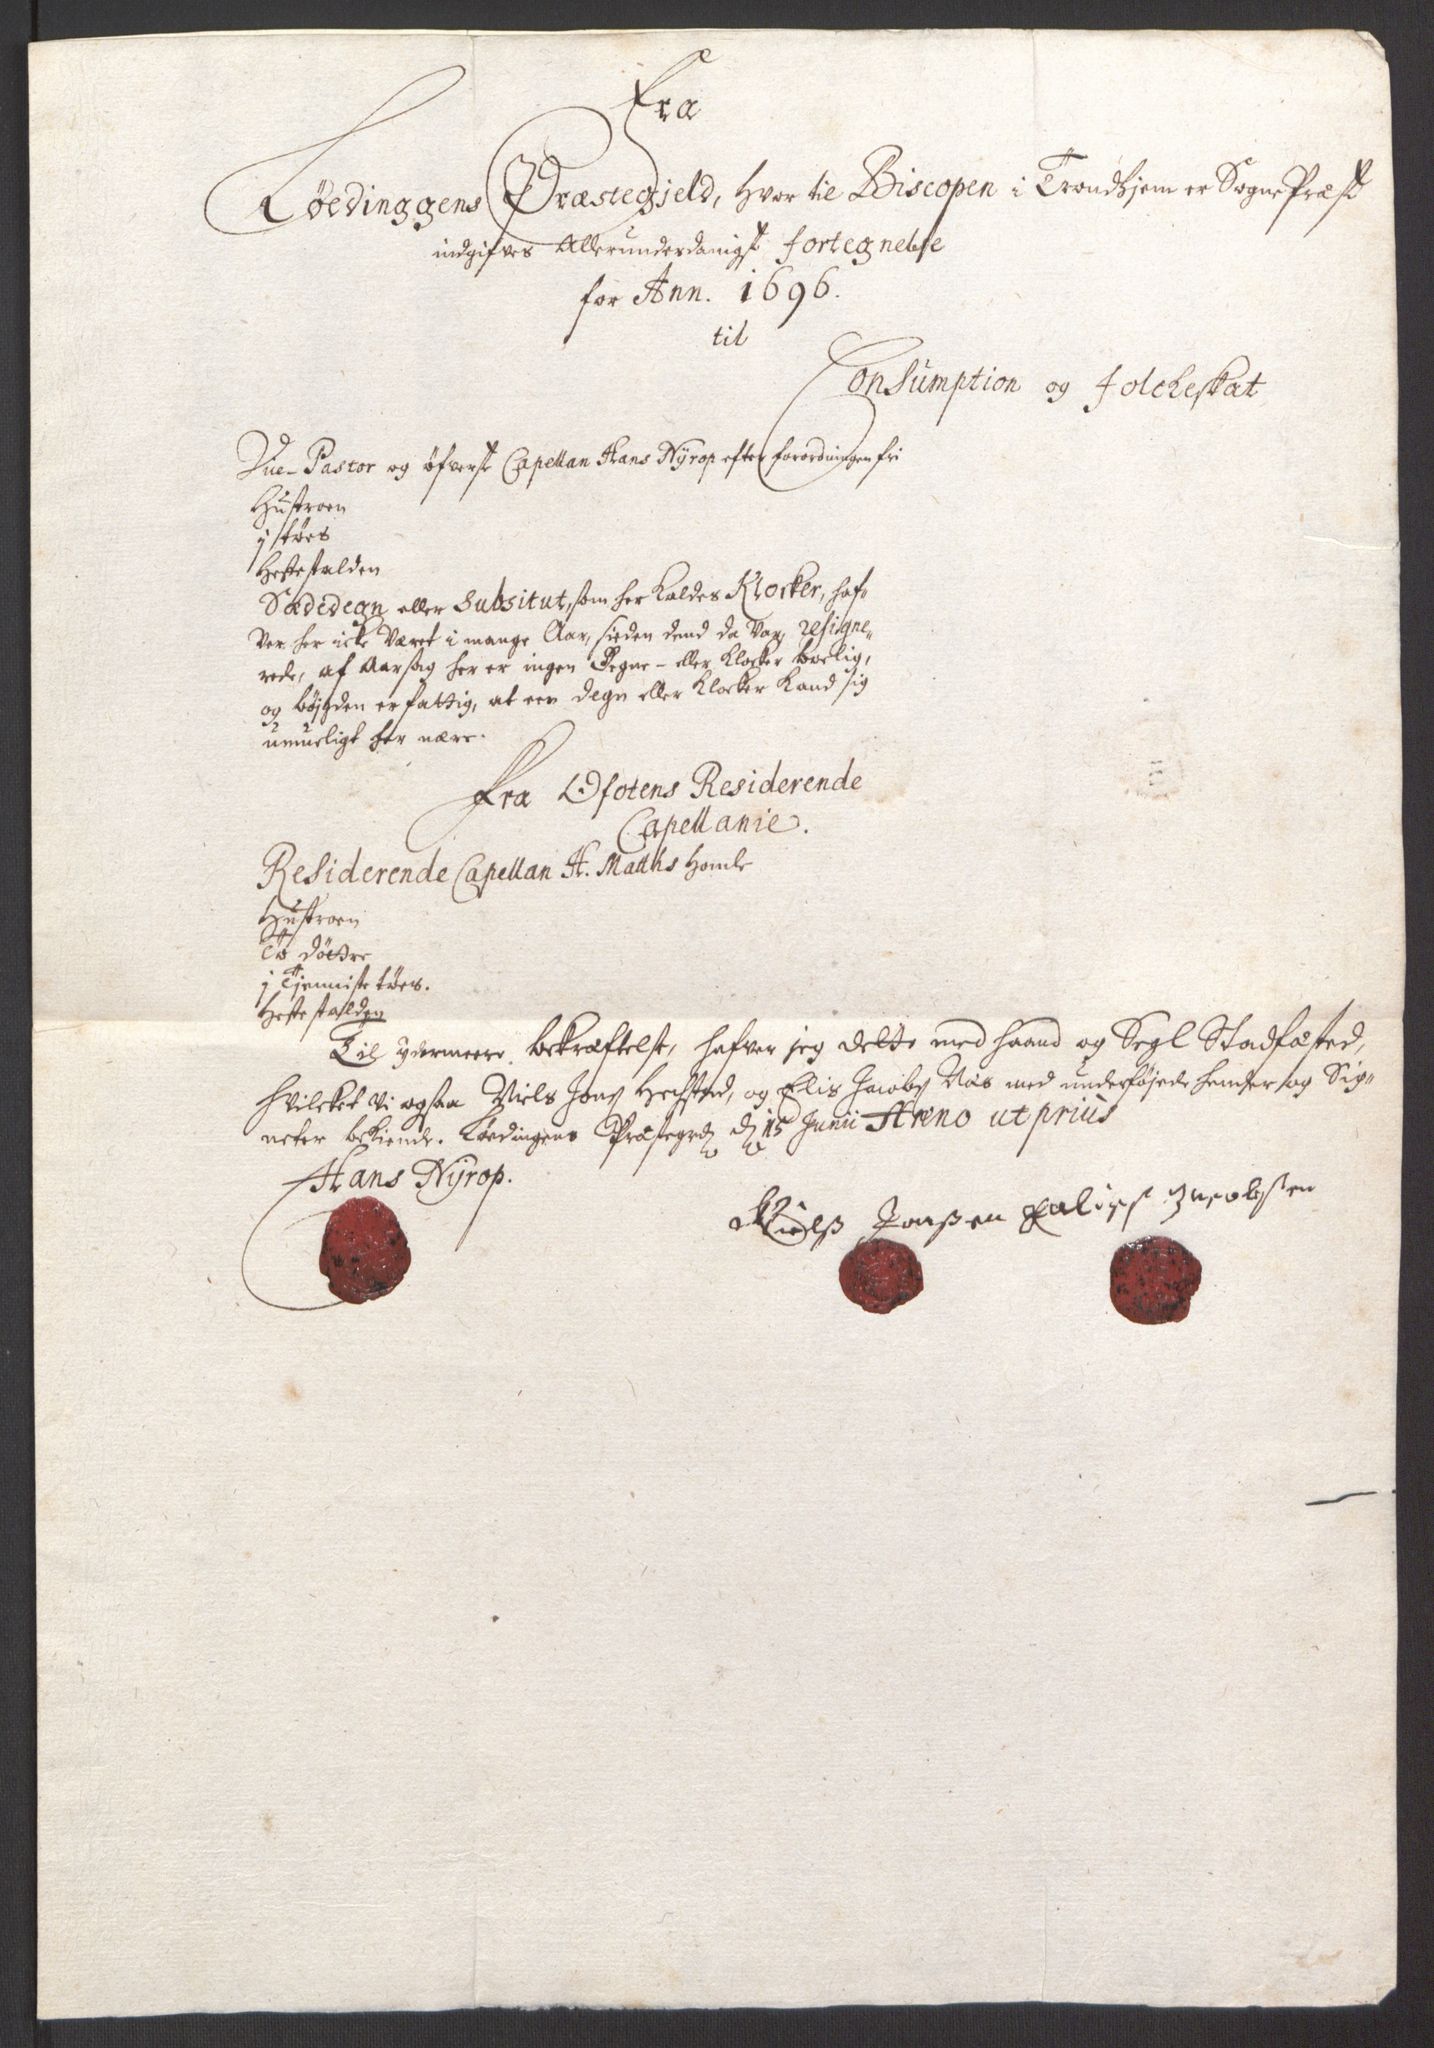 Fra
Løedinggens Præstegjeld, hvor til Biscopen i Trondhjem er Sogne Præst
indgifves Allerunderdanigst fortegnelse
for Ann. 1696.
til
Consumption og Folcheskat
Vice-Pastor og øfverst Capellan Hans Nÿrop efter forordningen fri
Hustroen
j tøes
Hestestalden
Sædedegn eller Subsitut, som her kaldes Klocker, haf-
ver her icke været i mange Aar, sieden dend da var, resigne-
rede, af Aarsag her er ingen Degne- eller Klocker boelig,
og bøjgden er fattig, at een degn eller Klocker kand sig
umueligt her nære.
Fra Ofotens Residerende
Capellanie.
Residerende Capellan H. Mathis Homle
Hustroen
To døttre
j Tjenniste tøes.
Hestestalden
Til ydermeere bekræftelse, hafver jeg dette med haand og Segl Stadfæsted,
hvilcket vi ogsaa Niels Jons Hechstad, og Elis Jacobs Næs med underføjede hender og Sig-
neter bekiende. Løedingens Præstegrd d 15 Junii Anno ut prius
Hans Nÿrop.
Nielß Jonßen Ealiass Jacobsen